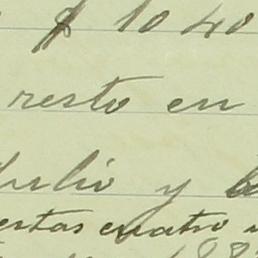 $ 1040
resto en
Julio y
ertas cuatro
188